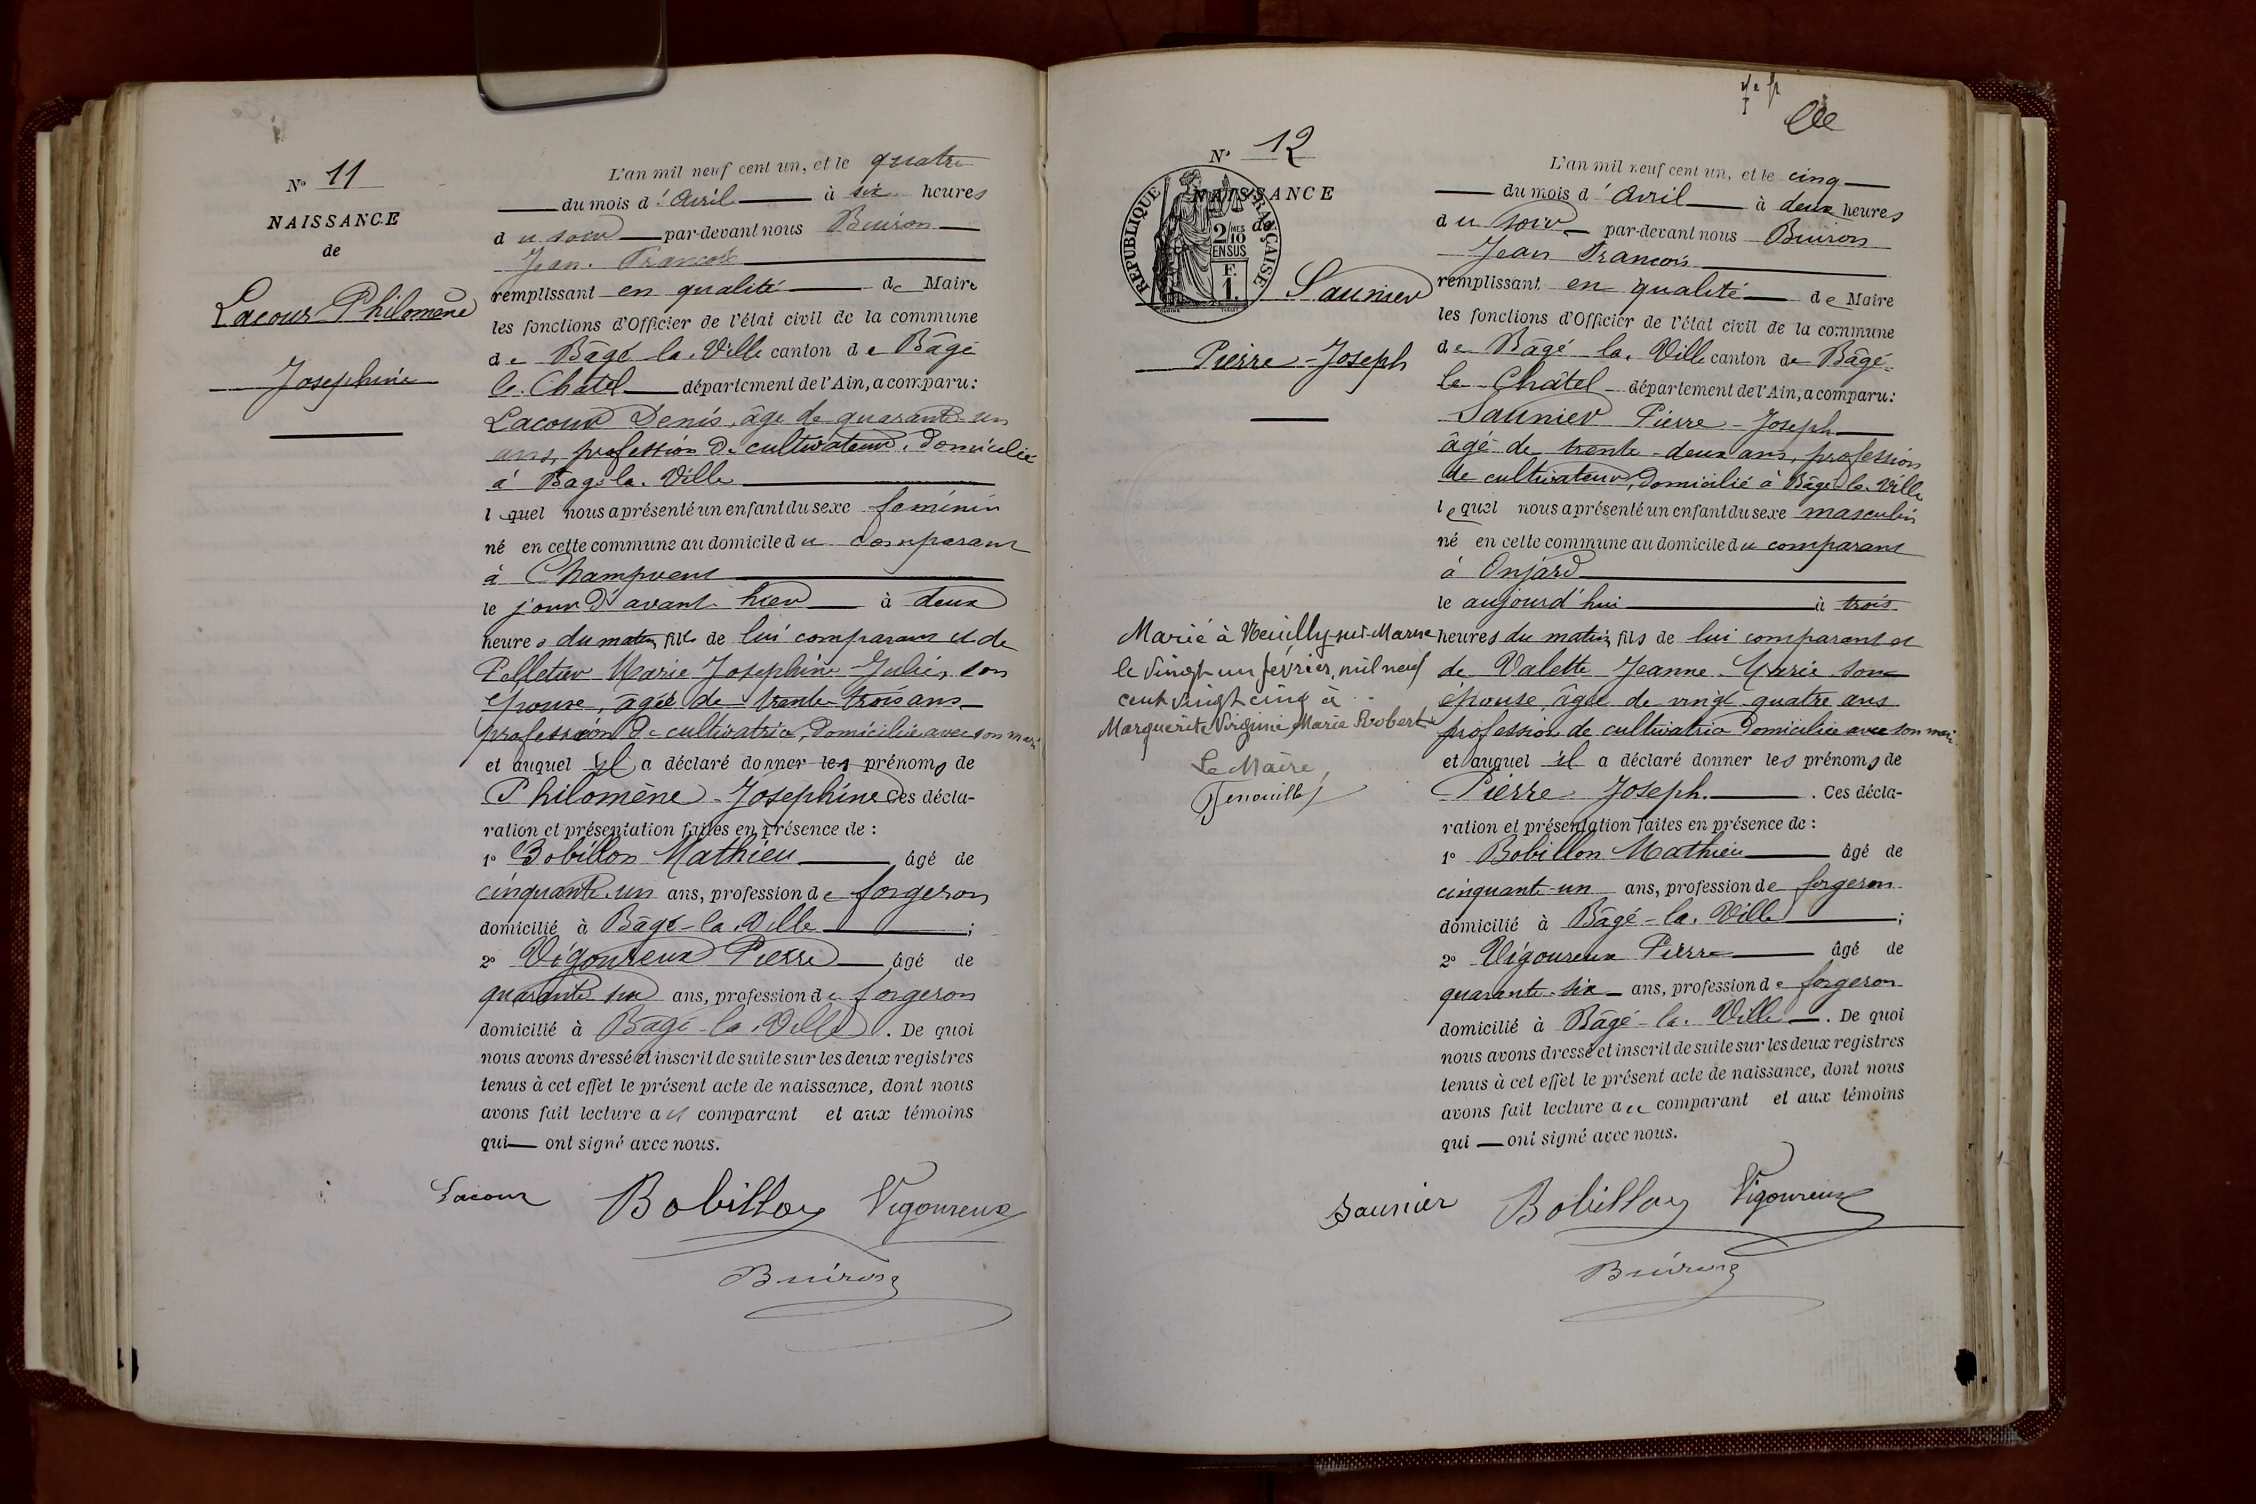 N° 11
NAISSANCE
de
Lacour Philomène
Josephine
L'an mil neuf cent un, et le quatre
du mois d'Avril à six heures
du soir par-devant nous Buiron
Jean François
remplissant en qualité de Maire
les fonctions d'Officier de l'état civil de la commune
de Bâgé la Ville canton de Bâgé
le Chatel département de l'Ain, a comparu:
Lacour Denis, âgé de quarante un
ans, profession de cultivateur, domicilié
à Bagé la Ville
lequel nous a présenté un enfant du sexe feminin
né en cette commune au domicile du comparant
à Champvent
le jour d'avant hier à deux
heures du matin, fille de lui comparant et de
Pelletier Marie Josephine Julie, son
épouse, âgée de trente-trois ans
profession de cultivatrice, domiciliée avec son mari
et auquel il a déclaré donner les prénoms de
Philomène Josephine Ces décla-
ration et présentation faites en présence de :
1° Bobillon Mathieu âgé de
cinquante un ans, profession de forgeron
domicilié à Bâgé-la Ville ;
2° Vigoureux Pierre âgé de
quarante six ans, profession de forgeron
domicilié à Bâgé la Ville . De quoi
nous avons dressé et inscrit de suite sur les deux registres
tenus à cet effet le présent acte de naissance, dont nous
avons fait lecture au comparant et aux témoins
qui ont signé avec nous.
Lacour Bobillon Vigoureux
Buiron
N° 12
NAISSANCE
de
RÉPUBLIQUE FRANÇAISE
2/10 MES
EN SUS
F.
1.
Saunier
Pierre-Joseph
L'an mil neuf cent un, et le cinq
du mois d'Avril à deux heures
du soir par-devant nous Buiron
Jean François
remplissant en qualité de Maire
les fonctions d'Officier de l'état civil de la commune
de Bâgé la Ville canton de Bâgé
le Châtel département de l'Ain, a comparu:
Saunier Pierre-Joseph
âgé de trente-deux ans, profession
de cultivateur, domicilié à Bâgé la Ville
lequel nous a présenté un enfant du sexe masculin
né en cette commune au domicile du comparant
à Onjard
le aujourd'hui à trois
heures du matin, fils de lui comparant et
de Valette Jeanne Marie son
épouse, âgée de vingt quatre ans
profession de cultivatrice domiciliée avec son mari
et auquel il a déclaré donner les prénoms de
Pierre Joseph. . Ces décla-
ration et présentation faites en présence de :
1° Bobillon Mathieu âgé de
cinquante-un ans, profession de forgeron
domicilié à Bâgé-la Ville ;
2° Vigoureux Pierre âgé de
quarante-six ans, profession de forgeron
domicilié à Bâgé-la Ville . De quoi
nous avons dressé et inscrit de suite sur les deux registres
tenus à cet effet le présent acte de naissance, dont nous
avons fait lecture au comparant et aux témoins
qui ont signé avec nous.
Marié à Neuilly-sur-Marne
le vingt-un février, mil neuf
cent vingt cinq à
Marguerite Virginie Marie Robert
Le Maire,
Saunier Bobillon Vigoureux
Buiron